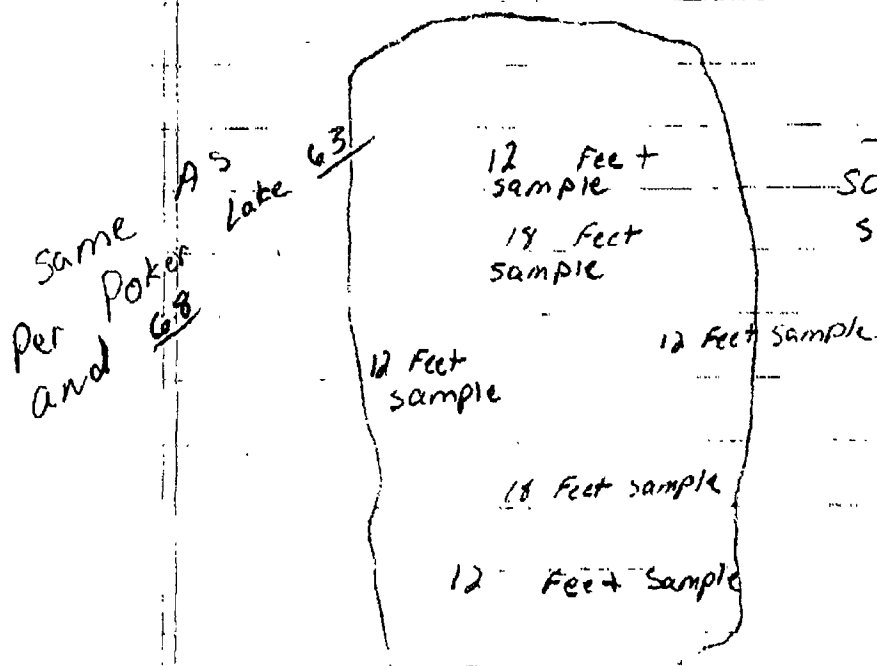 Same As
Per Poker Lake 63
and 68
12 Feet
sample
18 Feet
sample
12 Feet
sample
12 Feet sample
18 Feet sample
12 Feet Sample